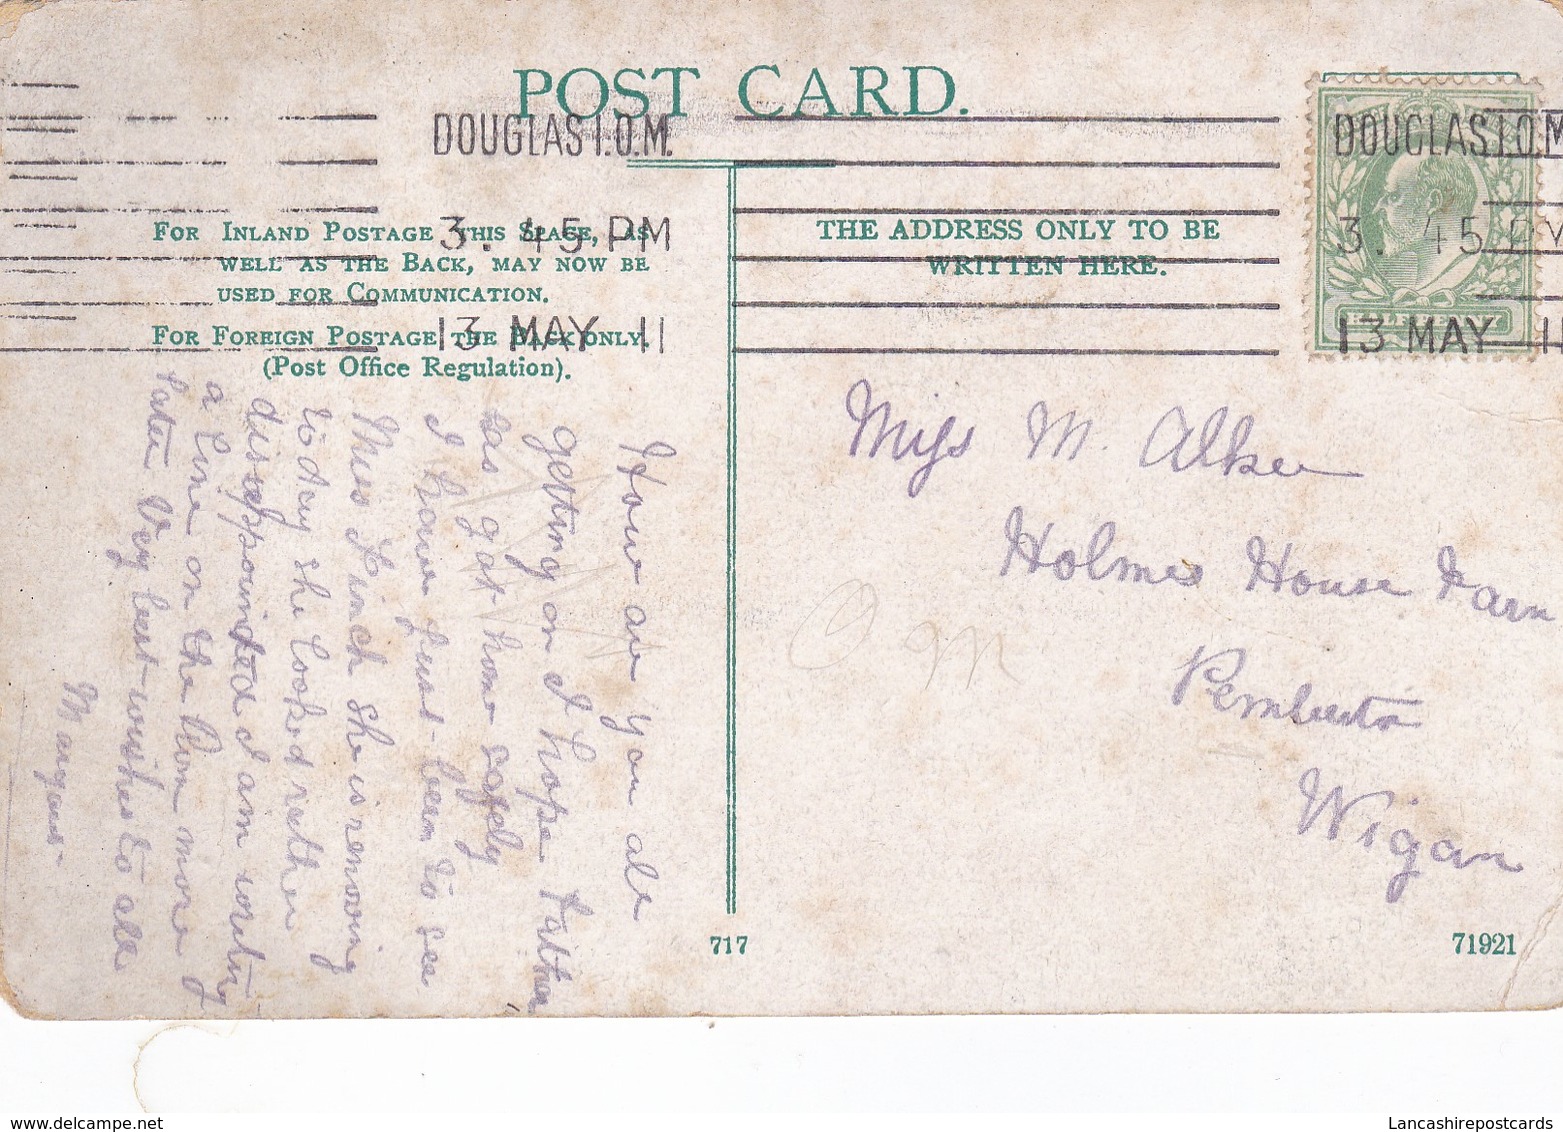 POST CARD.
DOUGLAS I.O.M.
3. 45 PM
13 MAY 11
DOUGLAS I.O.M
3. 45 PM
13 MAY 11
FOR INLAND POSTAGE THIS SPACE, AS
WELL AS THE BACK, MAY NOW BE
USED FOR COMMUNICATION.
FOR FOREIGN POSTAGE THE BACK ONLY.
(Post Office Regulation).
THE ADDRESS ONLY TO BE
WRITTEN HERE.
How are you all
getting on I hope Father
has got home safely
I have just been to see
Miss Finch she is renowing
to day she looked rather
dissappointed I am writing
a line on the Prom more
later Very best wishes to all
Margaret
Miss M. Alker
Holmes House Farm
Pemberton
Wigan
O m
717
71921
Lancashirepostcards